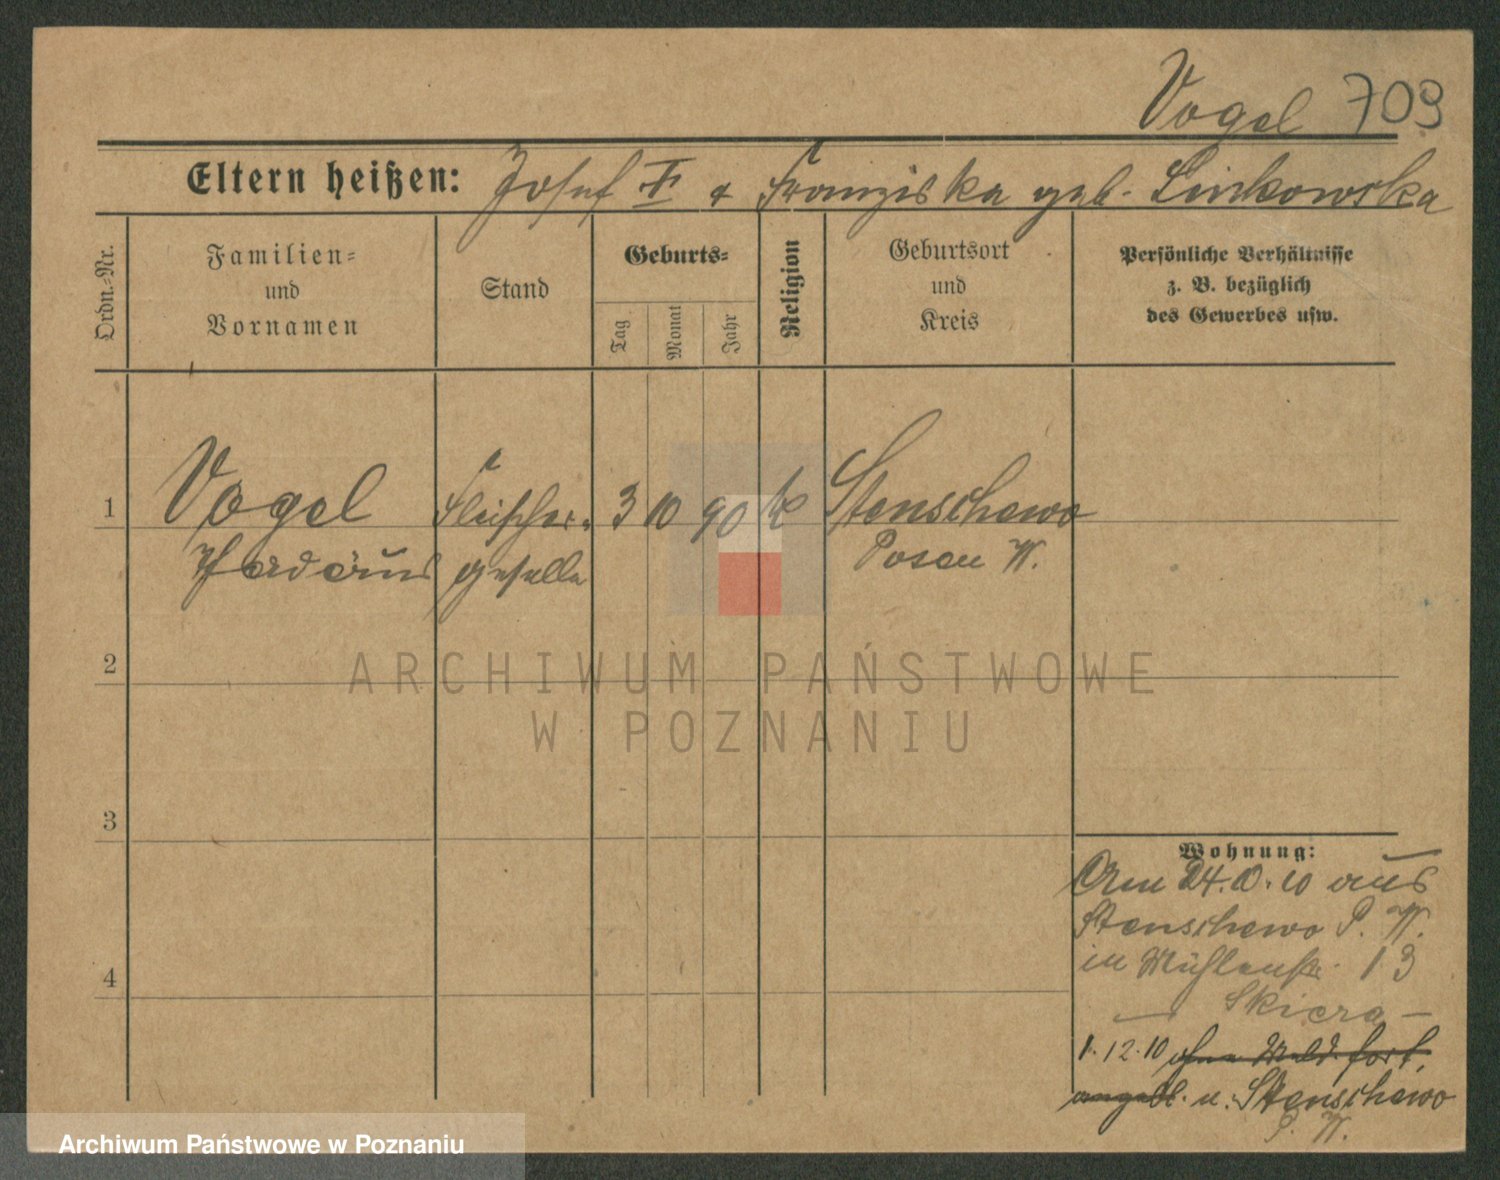 Vogel 709
Eltern heißen: Josef † & Franziska geb. Linkowska
Ordn.-Nr.
Familien-
und
Vornamen
Stand
Geburts-
Tag
Monat
Jahr
Religion
Geburtsort
und
Kreis
Persönliche Verhältnisse
z. B. bezüglich
des Gewerbes usw.
1 Vogel Fleischer- 3 10 90 k Stenschewo
Tadäus geselle Posen W.
2
3
4
Wohnung:
Am 24.10.10 aus
Stenschewo P. W.
in Mühlenstr. 13
— Skiera —
1.12.10 ohne Meld. fort,
angebl. n. Stenschewo
P. W.
ARCHIWUM PAŃSTWOWE
W POZNANIU
Archiwum Państwowe w Poznaniu